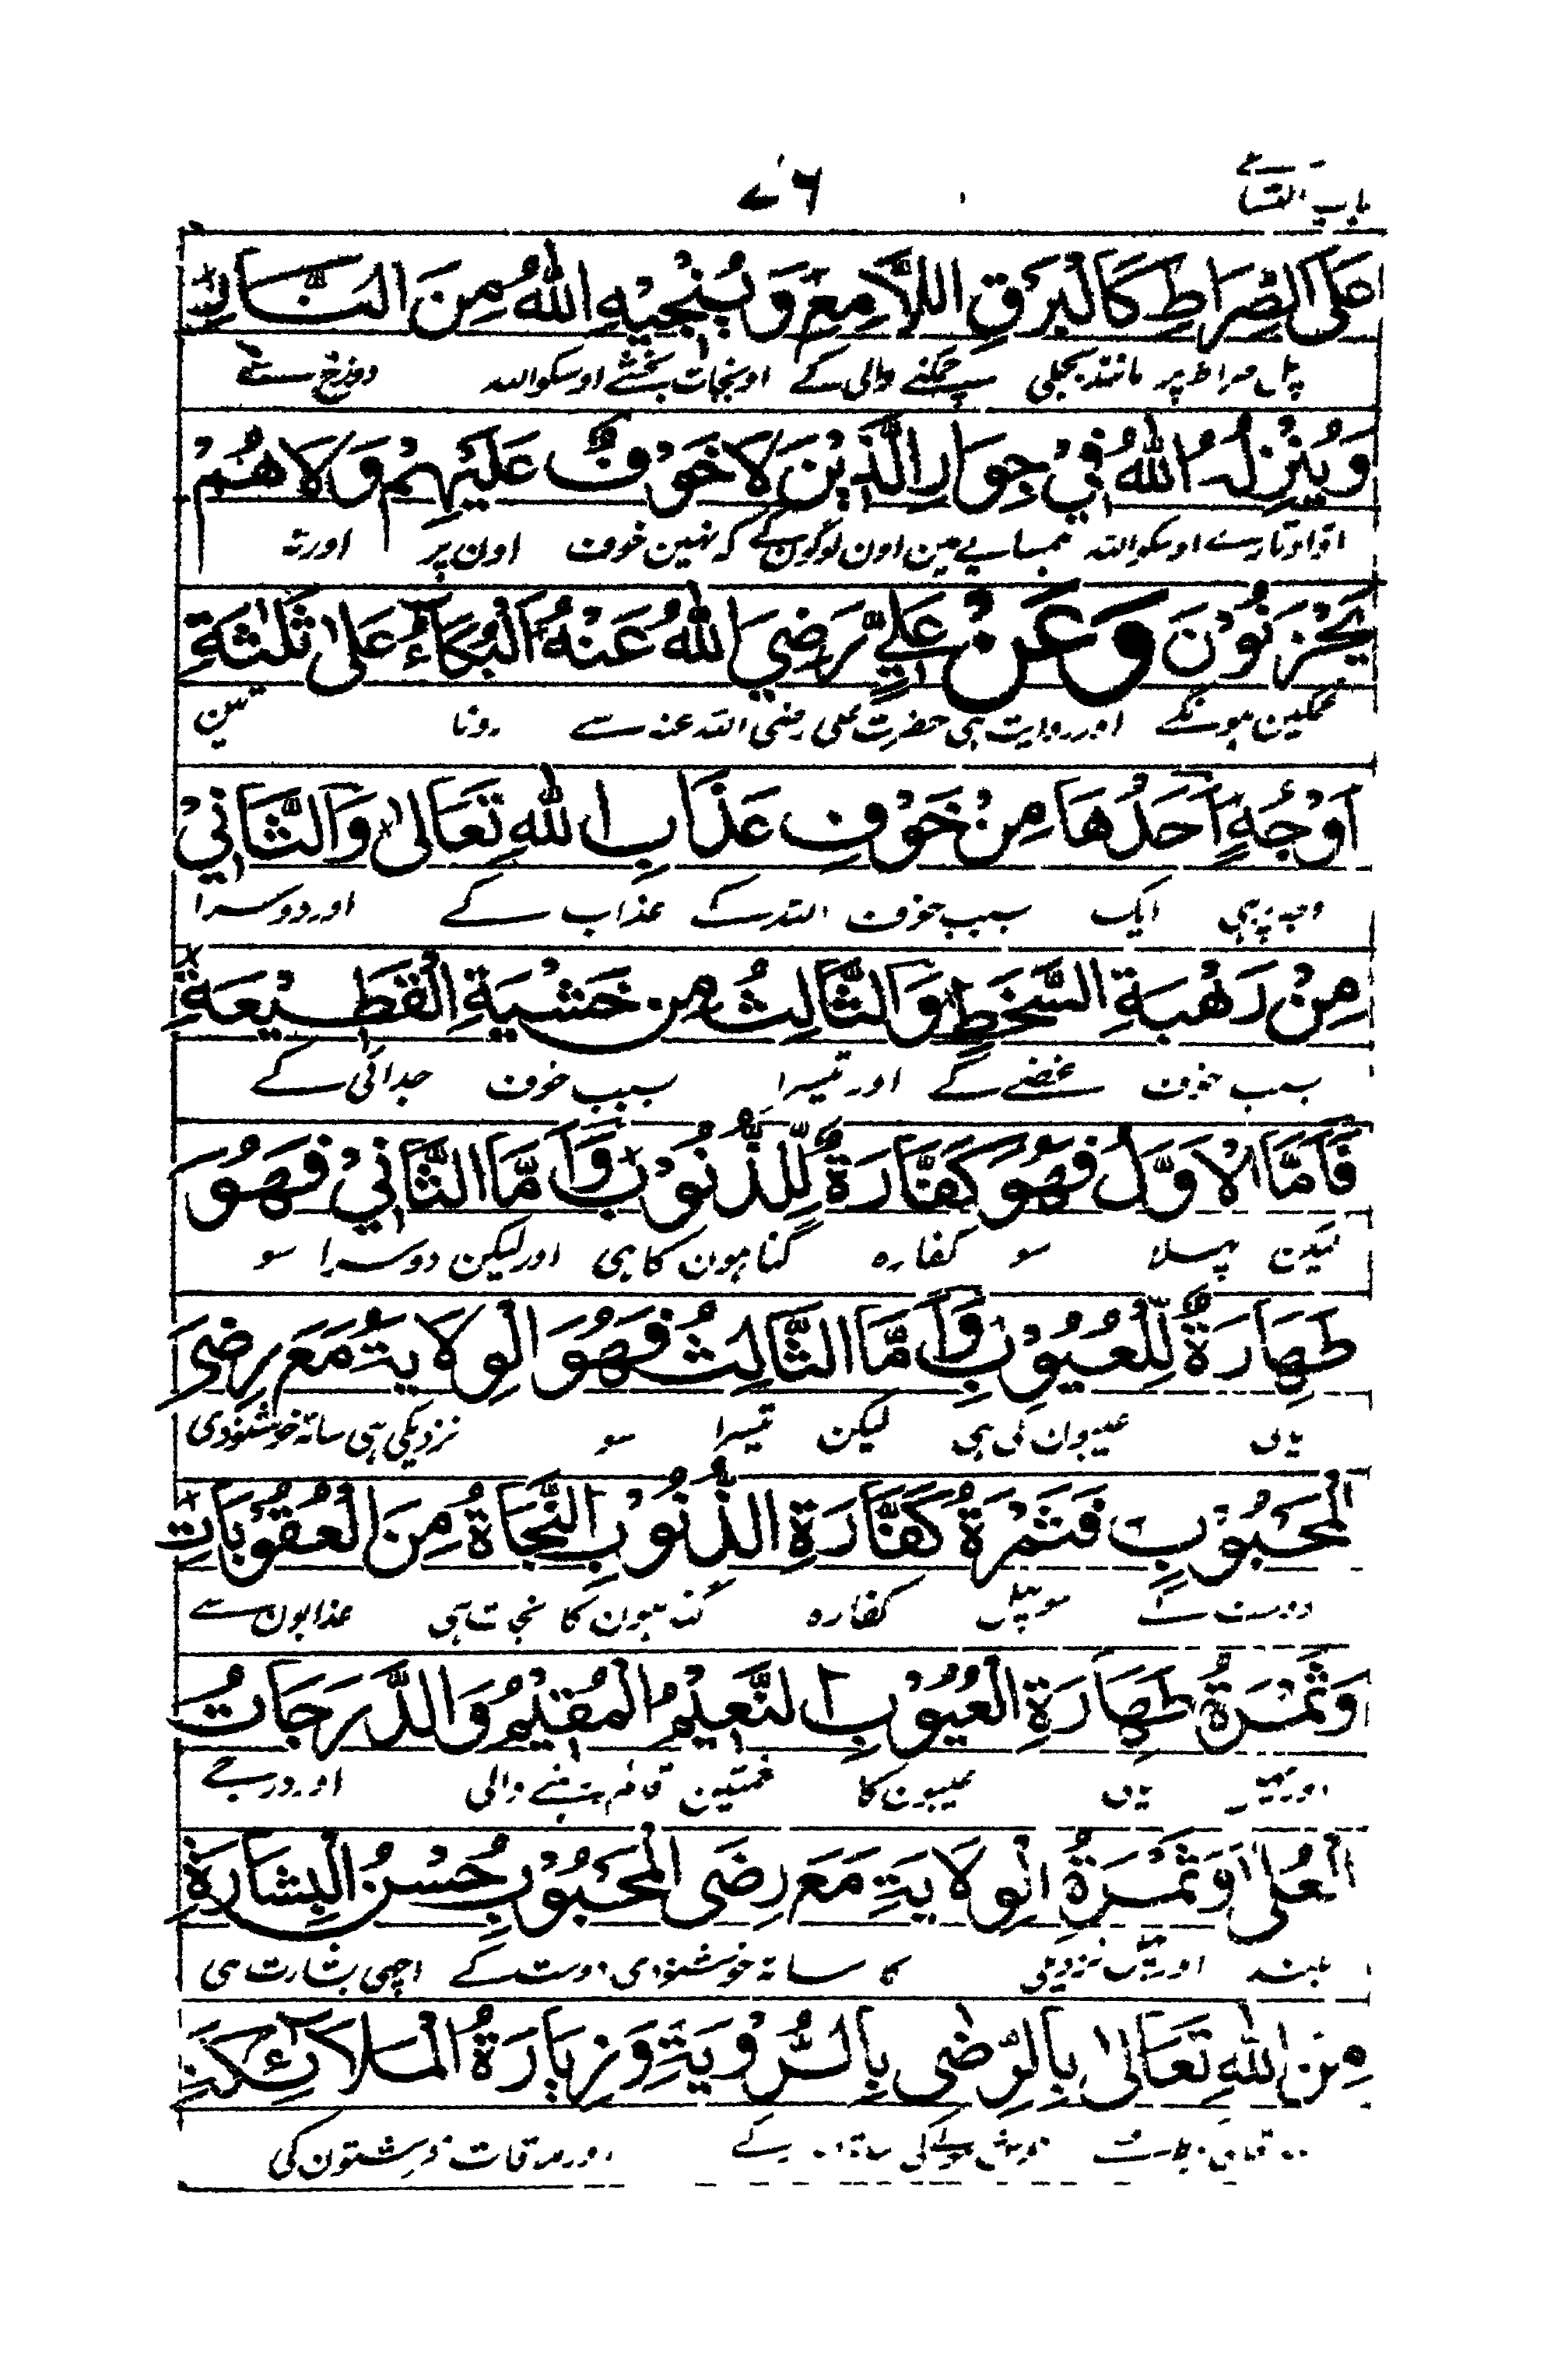 باب الثلاثے
۷۶
عَلَى الصِّرَاطِ كَالْبَرْقِ اللَّامِعِ وَيُنْجِيْهِ اللّٰهُ مِنَ النَّارِ
پل صراط پر مانند بجلی چمکنے والی کے اور نجات بخشے اوسکو اللہ دوزخ سے
وَيُنْزِلُهُ اللّٰهُ فِيْ جِوَارِ الَّذِيْنَ لَا خَوْفٌ عَلَيْهِمْ وَلَا هُمْ
اوتارے اوسکو اللہ ہمسایے مین اون لوگون کے کہ نہین خوف اون پر اور نہ
يَحْزَنُوْنَ وَعَنْ عَلِيٍّ رَضِيَ اللّٰهُ عَنْهُ اَلْبُكَاءُ عَلٰى ثَلٰثَةِ
غمگین ہونگے اور روایت ہی حضرت علی رضی اللہ عنہ سے رونا تین
اَوْجُهٍ اَحَدُهَا مِنْ خَوْفِ عَذَابِ اللّٰهِ تَعَالٰى وَالثَّانِيْ
وجہ پر ہی ایک بسبب خوف اللہ کے عذاب کے اور دوسرا
مِنْ رَهْبَةِ السَّخَطِ وَالثَّالِثُ مِنْ خَشْيَةِ الْقَطِيْعَةِ
بسبب خوف غصے کے اور تیسرا بسبب خوف جدائی کے
فَاَمَّا الْاَوَّلُ فَهُوَ كَفَّارَةٌ لِّلذُّنُوْبِ وَاَمَّا الثَّانِيْ فَهُوَ
لیکن پہلا سو کفارہ گناہون کا ہی اور لیکن دوسرا سو
طَهَارَةٌ لِّلْعُيُوْبِ وَاَمَّا الثَّالِثُ فَهُوَ الْوِلَايَةُ مَعَ رِضَى
عیبون کی ہی لیکن تیسرا سو نزدیکی ہی ساتھ خوشنودی
الْمَحْبُوْبِ فَثَمْرَةُ كَفَّارَةِ الذُّنُوْبِ النَّجَاةُ مِنَ الْعُقُوْبَاتِ
دوست کے سو پھل کفارہ گناہون کا نجات ہی عذابون سے
وَثَمْرَةُ طَهَارَةِ الْعُيُوْبِ النَّعِيْمُ الْمُقِيْمُ وَالدَّرَجَاتُ
عیبون کا نعمتین قائم رہنے والی اور درجے
الْعُلٰى وَثَمْرَةُ الْوِلَايَةِ مَعَ رِضَى الْمَحْبُوْبِ حُسْنُ الْبِشَارَةِ
بلند اور پھل نزدیکی کا ساتھ خوشنودی دوست کے اچھی بشارت ہی
مِنَ اللّٰهِ تَعَالٰى بِالرِّضٰى بِالرُّؤْيَةِ وَزِيَارَةُ الْمَلَائِكَةِ
کے اور ملاقات فرشتون کی